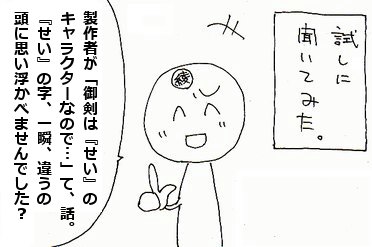 試しに
聞いてみた。
製作者が「御剣は『せい』の
キャラクターなので…」て、話。
『せい』の字、一瞬、違うの
頭に思い浮かべませんでした?